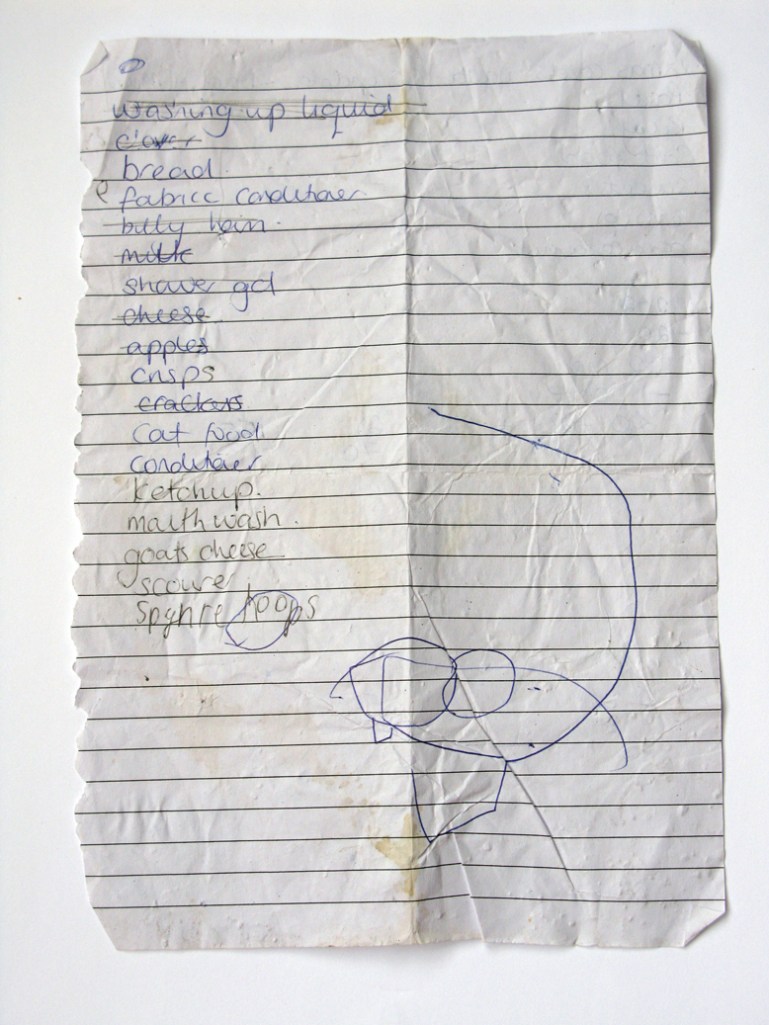 washing up liquid
clover
bread.
fabricc conditioner
billy ham.
milk
shower gel
cheese
apples
crisps
crackers
cat food
conditioner
ketchup.
mouthwash.
goats cheese
scourer
hoops